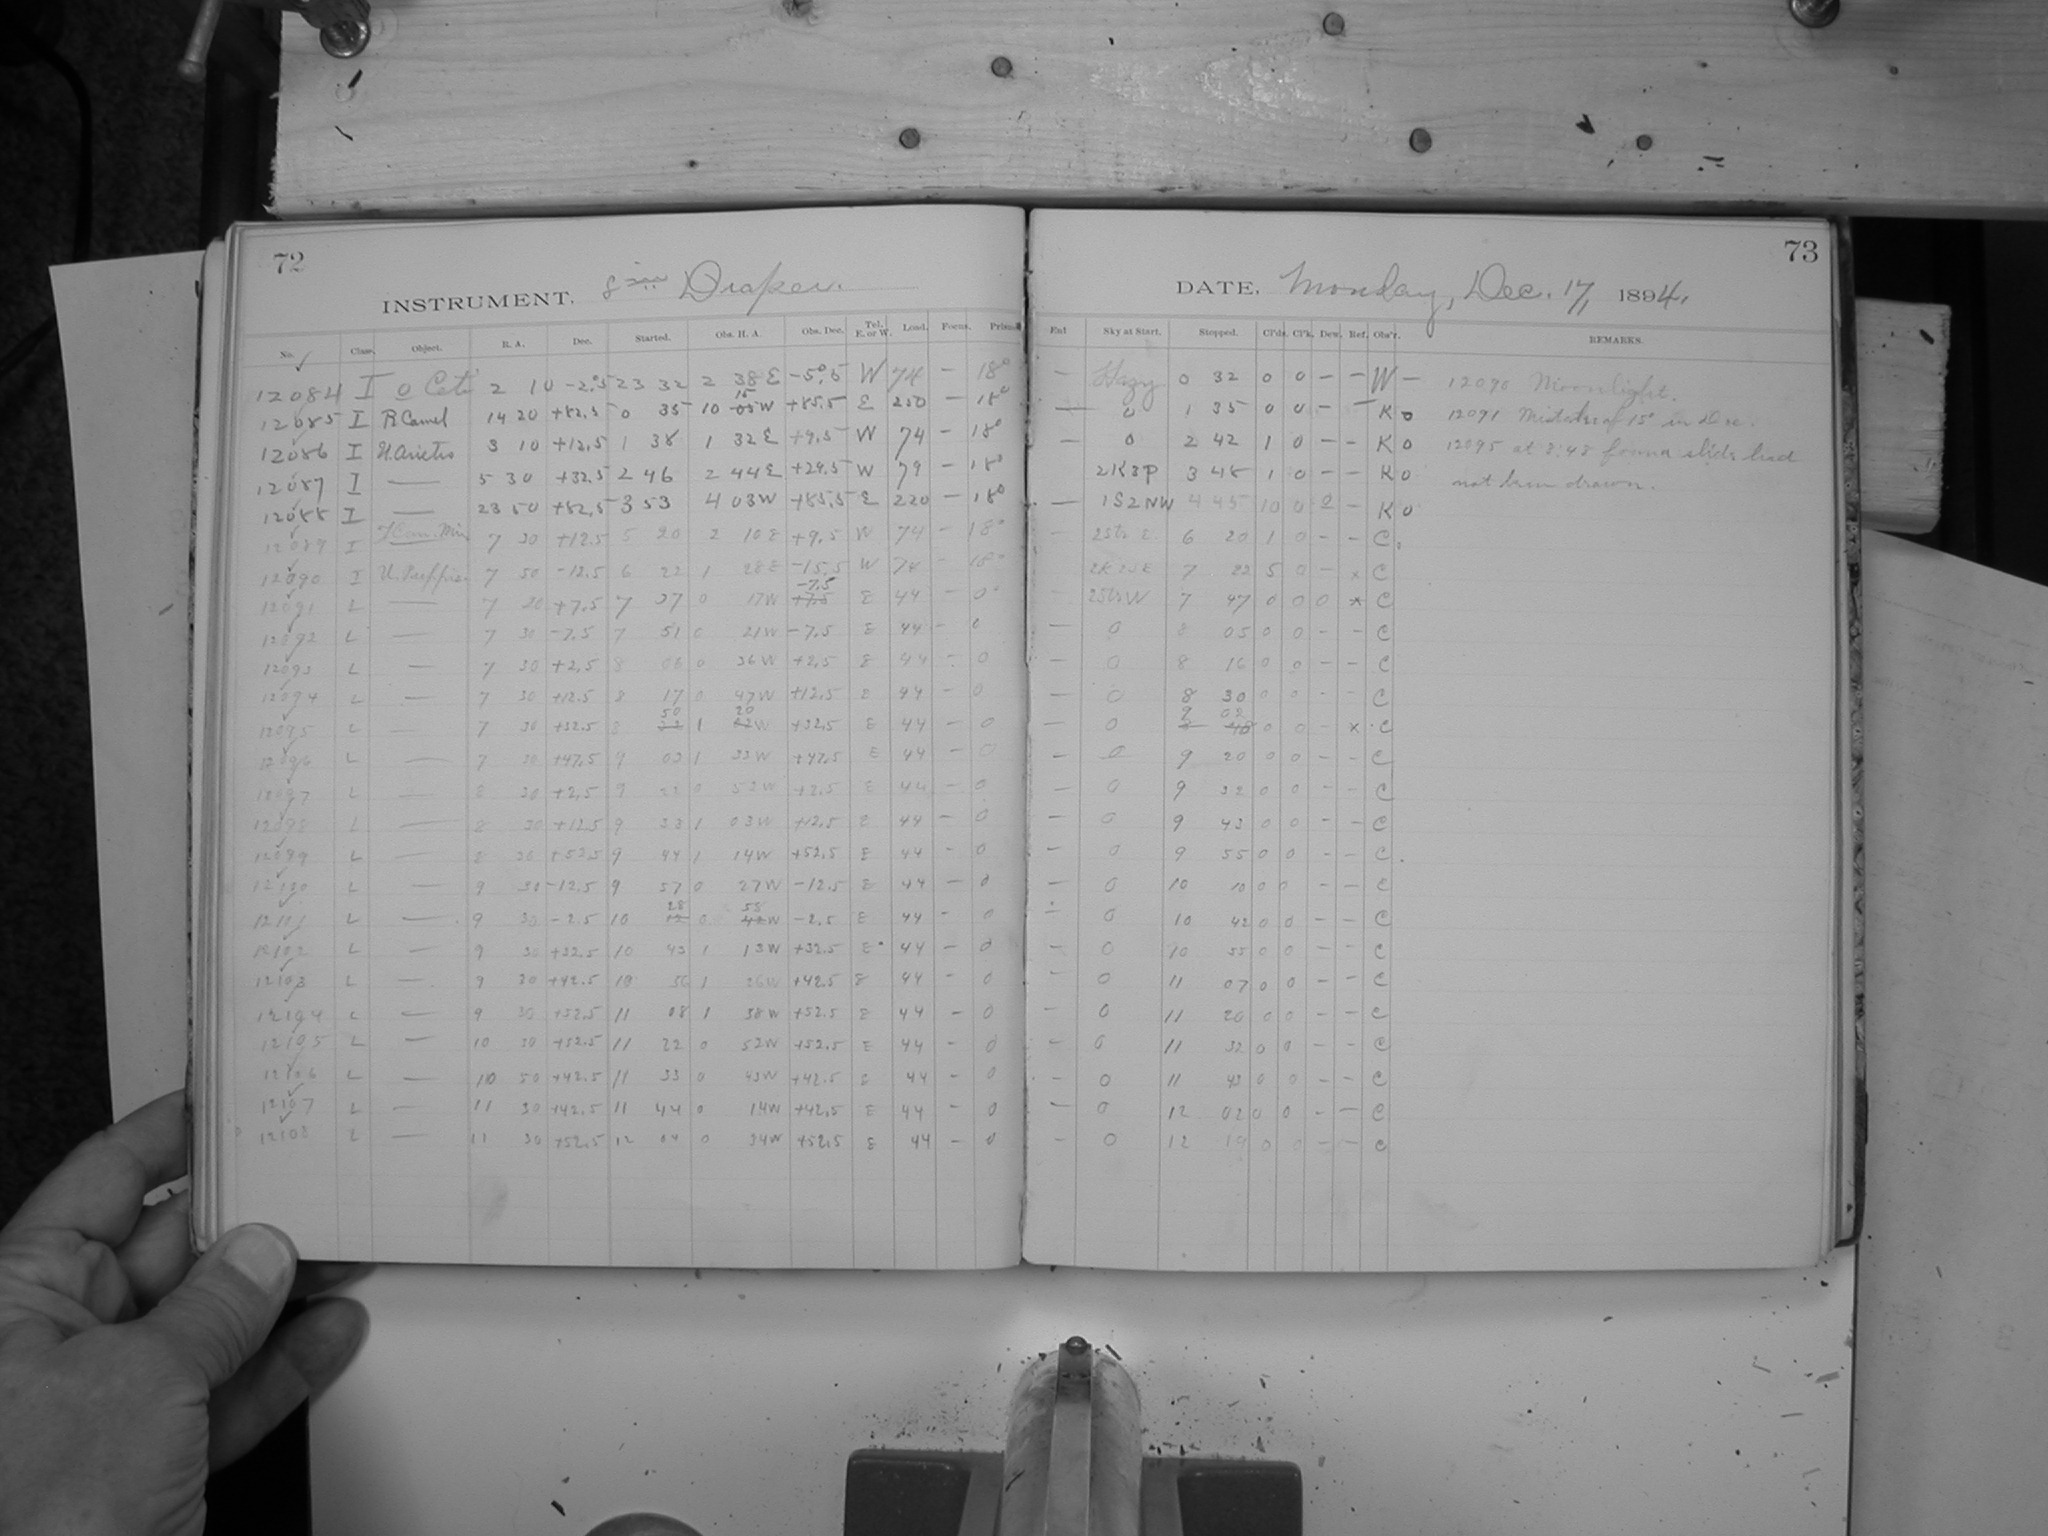 72
INSTRUMENT, 8 in Draper.
No. Class. Object. R. A. Dec. Started. Obs. H. A. Obs. Dec. Tel. E. or W. Load. Focus. Prisms
12084 I o Ceti 2 10 -2.5 23 32 2 38 E -5.5 W 74 - 18°
12085 I R Camel 14 20 +82.5 0 35 10 15 05 W +85.5 E 250 - 18°
12086 I U. Arietis 3 10 +12.5 1 38 1 32 E +9.5 W 74 - 18°
12087 I — 5 30 +32.5 2 46 2 44 E +29.5 W 79 - 18°
12088 I — 23 50 +82.5 3 53 4 03 W +85.5 E 220 - 18°
12089 I Can. Min 7 30 +12.5 5 20 2 10 E +9.5 W 74 - 18°
12090 I U. Puppis 7 50 -12.5 6 22 1 28 E -15.5 W 74 - 18°
12091 L — 7 30 +7.5 7 37 0 17 W -7.5 +7.5 E 44 - 0°
12092 L — 7 30 -7.5 7 51 0 21 W -7.5 E 44 - 0
12093 L — 7 30 +2.5 8 06 0 36 W +2.5 E 44 - 0
12094 L — 7 30 +12.5 8 17 0 47 W +12.5 E 44 - 0
12095 L — 7 30 +32.5 8 50 1 20 W +32.5 E 44 - 0
12096 L — 7 30 +47.5 9 03 1 33 W +47.5 E 44 - 0
12097 L — 8 30 +2.5 9 22 0 52 W +2.5 E 44 - 0
12098 L — 8 30 +12.5 9 33 1 03 W +12.5 E 44 - 0
12099 L — 8 30 +52.5 9 44 1 14 W +52.5 E 44 - 0
12100 L — 9 30 -12.5 9 57 0 27 W -12.5 E 44 - 0
12101 L — 9 30 -2.5 10 28 12 0 58 42 W -2.5 E 44 - 0
12102 L — 9 30 +32.5 10 43 1 13 W +32.5 E 44 - 0
12103 L — 9 30 +42.5 10 56 1 26 W +42.5 E 44 - 0
12104 L — 9 30 +52.5 11 08 1 38 W +52.5 E 44 - 0
12105 L — 10 30 +52.5 11 22 0 52 W +52.5 E 44 - 0
12106 L — 10 50 +42.5 11 33 0 43 W +42.5 E 44 - 0
12107 L — 11 30 +42.5 11 44 0 14 W +42.5 E 44 - 0
12108 L — 11 30 +52.5 12 04 0 34 W +52.5 E 44 - 0
73
DATE, Monday, Dec. 17, 1894.
Ent Sky at Start. Stopped. Cl'ds. Cl'k. Dew. Ref. Obs'r. REMARKS.
- Hazy 0 32 0 0 - - W - 12090 Moonlight.
— 0 1 35 0 0 - - K 0 12091 Mistake of 15° in Dec.
- 0 2 42 1 0 - - K 0 12095 at 8:48 found slide had
2K3P 3 48 1 0 - - K 0 not been drawn.
— 1S2NW 4 45 10 0 0 - K 0
- 2Sts E 6 20 1 0 - - C.
7 22 5 0 - x C
- 2StsW 7 47 0 0 0 x C
- 0 8 05 0 0 - - C
- 0 8 16 0 0 - - C
- 0 8 30 0 0 - - C
- 0 9 02 8 48 0 0 - x C
- 0 9 20 0 0 - - C
- 0 9 32 0 0 - - C
- 0 9 43 0 0 - - C
- 0 9 55 0 0 - - C.
- 0 10 10 0 0 - - C
- 0 10 42 0 0 - - C
- 0 10 55 0 0 - - C
- 0 11 07 0 0 - - C
- 0 11 20 0 0 - - C
- 0 11 32 0 0 - - C
- 0 11 43 0 0 - - C
- 0 12 02 0 0 - - C
- 0 12 19 0 0 - - C